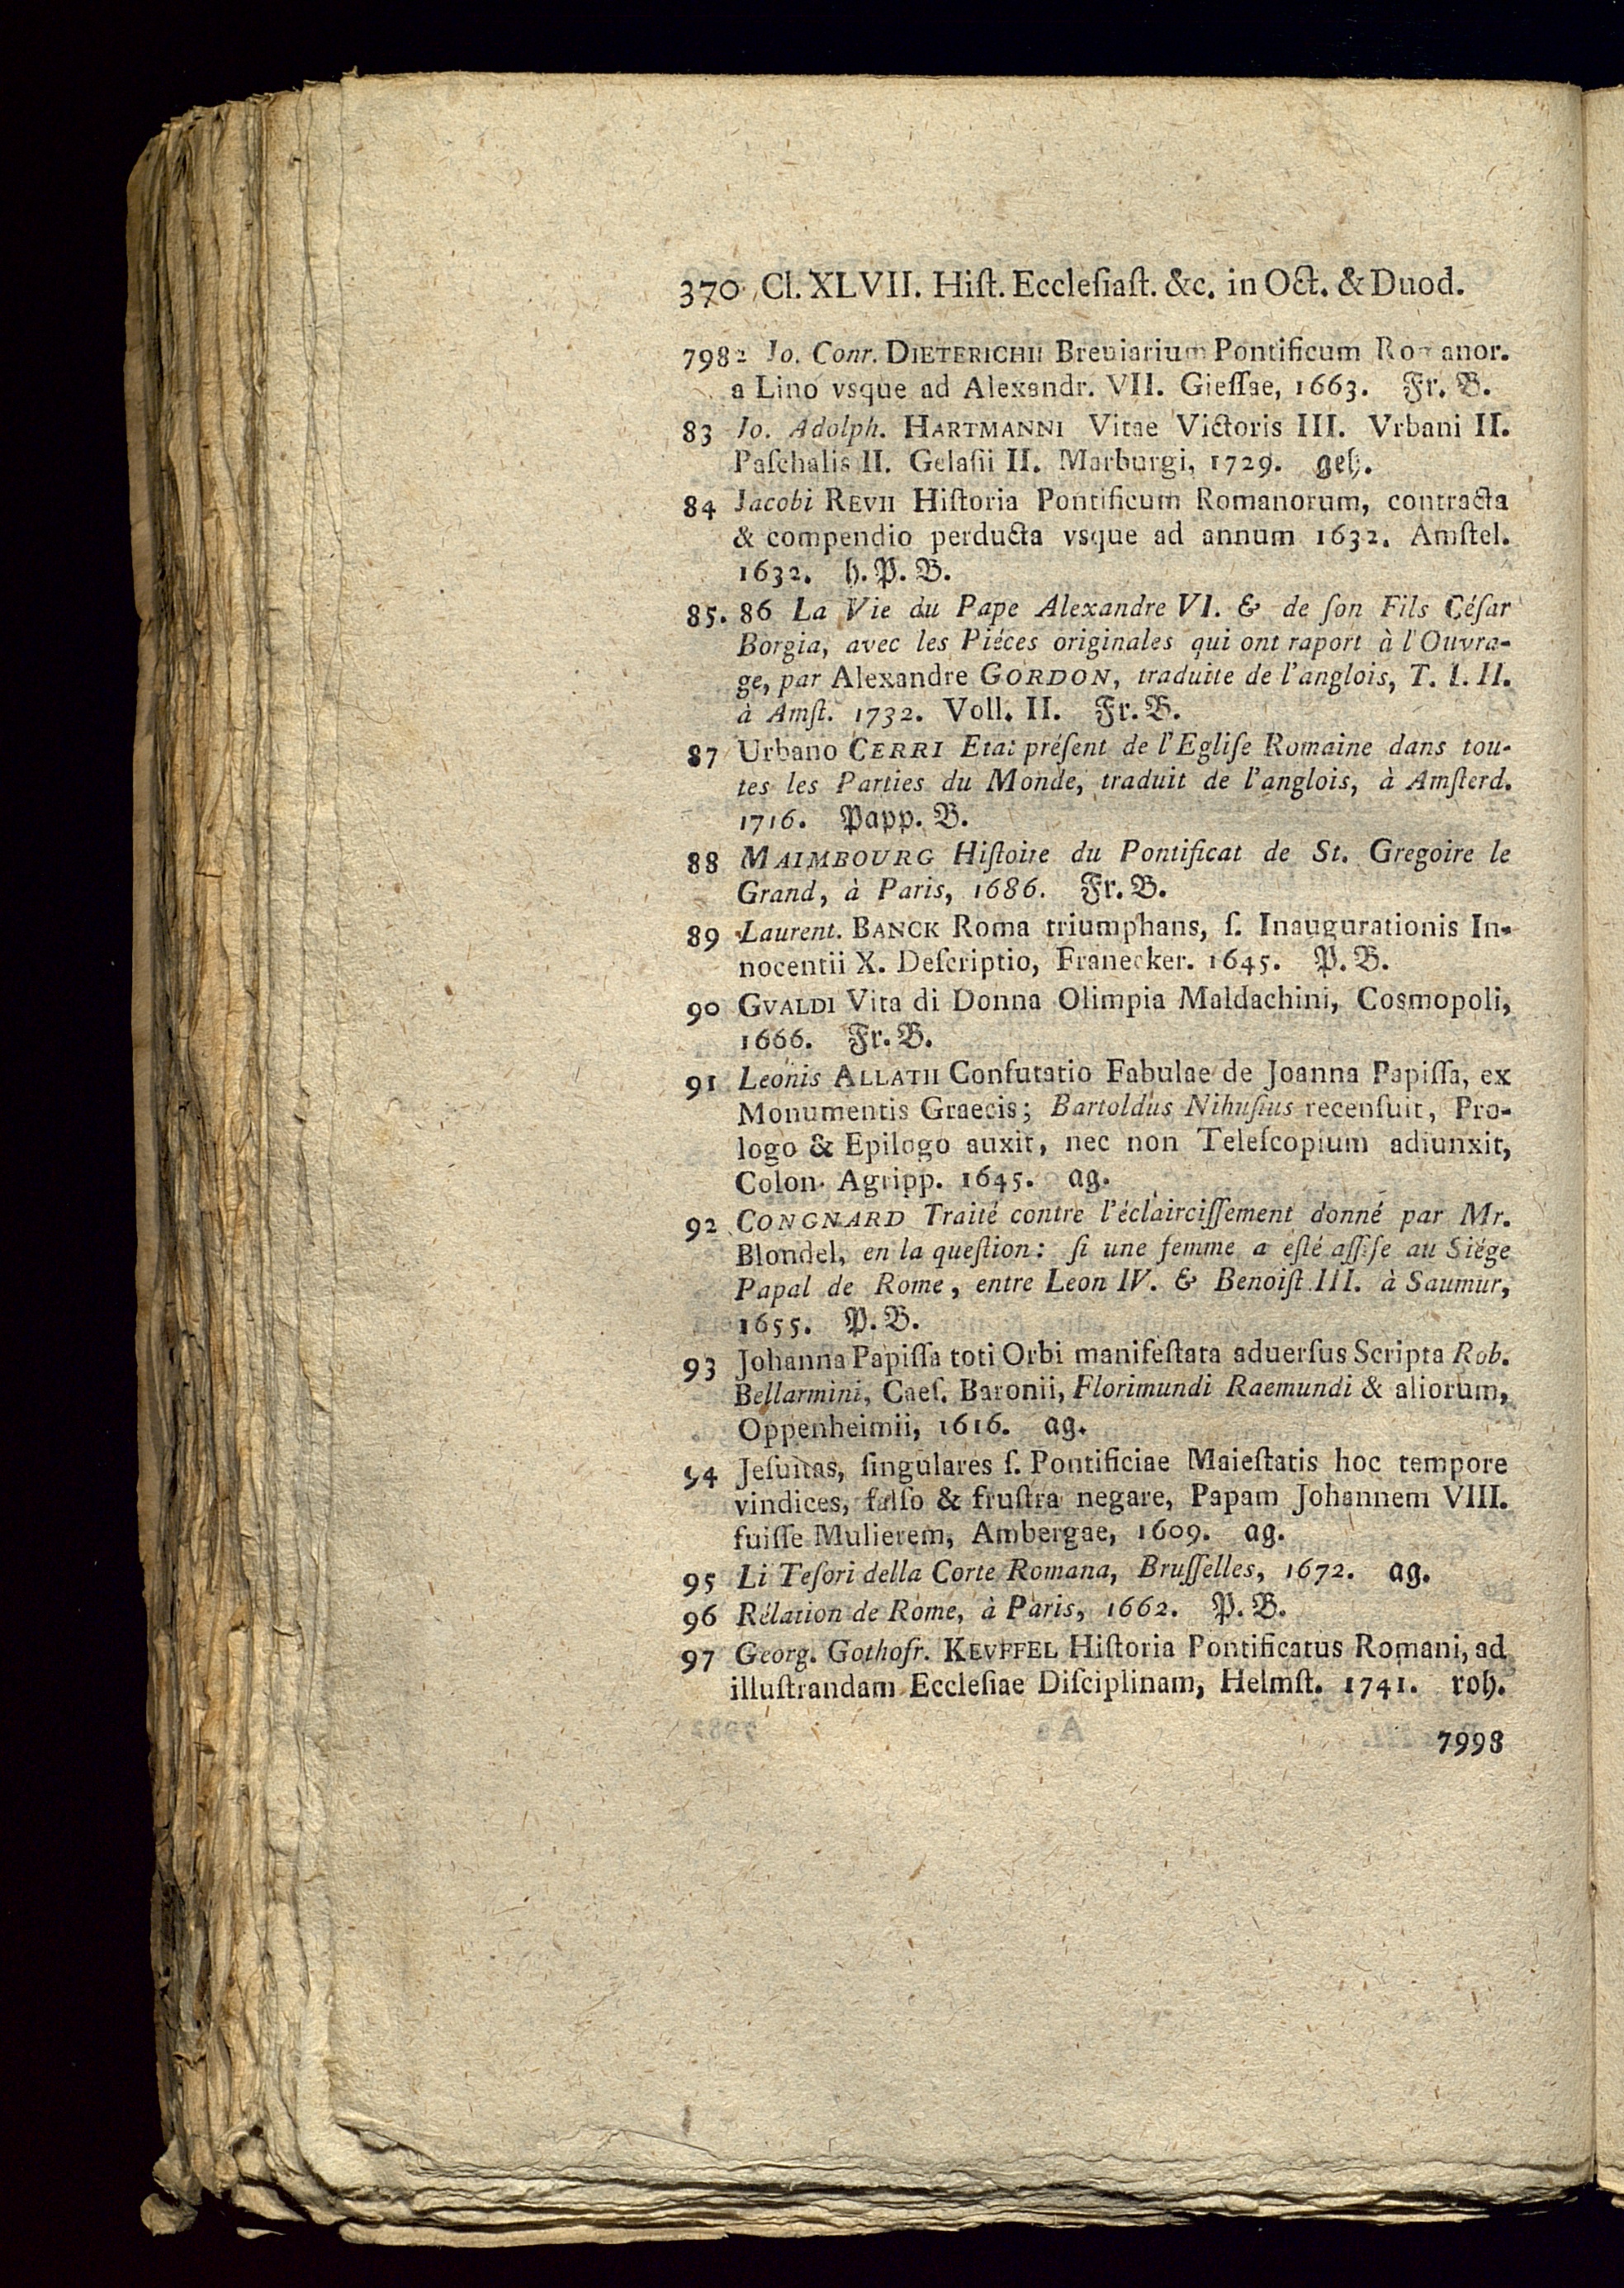 370 Cl. XLVII. Hiſt. Eccleſiaſt. &c. in Oct. & Duod.
7982 Jo. Conr. DIETERICHII Breuiarium Pontificum Romanor.
a Lino vsque ad Alexandr. VII. Gieſſae, 1663. Fr. B.
83 Jo. Adolph. HARTMANNI Vitae Victoris III. Vrbani II.
Paſchalis II. Gelaſii II. Marburgi, 1729. geh.
84 Jacobi REVII Hiſtoria Pontificum Romanorum, contracta
& compendio perducta vsque ad annum 1632. Amſtel.
1632. h. P. B.
85. 86 La Vie du Pape Alexandre VI. & de ſon Fils Céſar
Borgia, avec les Piéces originales qui ont raport à l'Ouvra-
ge, par Alexandre GORDON, traduite de l'anglois, T. I. II.
à Amſt. 1732. Voll. II. Fr. B.
87 Urbano CERRI Etat préſent de l'Egliſe Romaine dans tou-
tes les Parties du Monde, traduit de l'anglois, à Amſterd.
1716. Papp. B.
88 MAIMBOURG Hiſtoire du Pontificat de St. Gregoire le
Grand, à Paris, 1686. Fr. B.
89 Laurent. BANCK Roma triumphans, ſ. Inaugurationis In-
nocentii X. Deſcriptio, Franecker. 1645. P. B.
90 GVALDI Vita di Donna Olimpia Maldachini, Cosmopoli,
1666. Fr. B.
91 Leonis ALLATII Confutatio Fabulae de Joanna Papiſſa, ex
Monumentis Graecis; Bartoldus Nihuſius recenſuit, Pro-
logo & Epilogo auxit, nec non Teleſcopium adiunxit,
Colon. Agripp. 1645. ag.
92 CONGNARD Traité contre l'éclairciſſement donné par Mr.
Blondel, en la queſtion: ſi une femme a eſté aſſiſe au Siége
Papal de Rome, entre Leon IV. & Benoiſt III. à Saumur,
1655. P. B.
93 Johanna Papiſſa toti Orbi manifeſtata aduerſus Scripta Rob.
Bellarmini, Caeſ. Baronii, Florimundi Raemundi & aliorum,
Oppenheimii, 1616. ag.
94 Jeſuitas, ſingulares ſ. Pontificiae Maieſtatis hoc tempore
vindices, falſo & fruſtra negare, Papam Johannem VIII.
fuiſſe Mulierem, Ambergae, 1609. ag.
95 Li Teſori della Corte Romana, Bruſſelles, 1672. ag.
96 Rélation de Rome, à Paris, 1662. P. B.
97 Georg. Gothofr. KEVFFEL Hiſtoria Pontificatus Romani, ad
illuſtrandam Eccleſiae Diſciplinam, Helmſt. 1741. roh.
7998